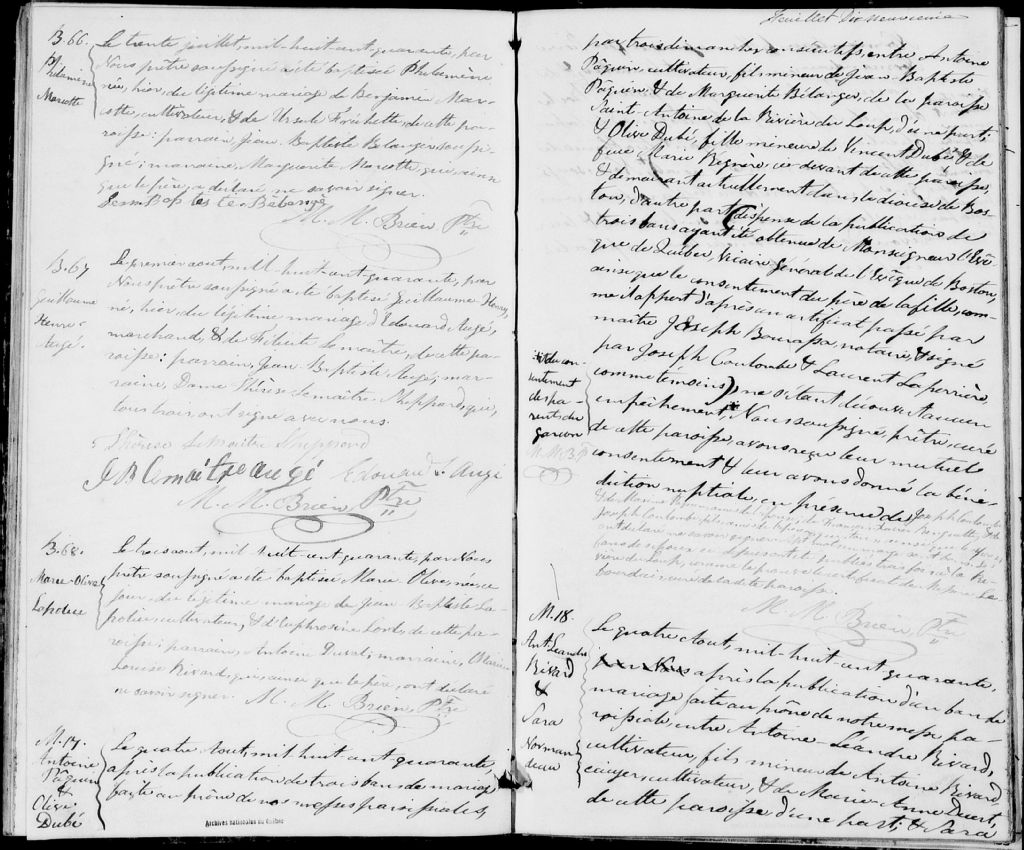 B. 66.
Philamine
Marcotte
Le trente juillet, mil-huit-cent quarante, par
Nous prêtre soussigné a été baptisée Philomène
née, hier, du légitime mariage de Benjamin Mar-
cotte, cultivateur, & de Ursule Fréchette, de cette pa-
roisse: parrain, Jean Baptiste Belanger soussi-
gné; marraine, Marguerite Marcotte, qui, ainsi
que le père, a déclaré ne savoir signer.
Jean Bap tes te Bélange
M. M. Brien Ptre
B. 67
Guillaume
Henri
Augé.
Le premier août, mil-huit-cent quarante, par
Nous prêtre soussigné a été baptisé Guillaume Henry,
né, hier, du légitime mariage d'Edouard Augé,
marchand, & de Félicité Lemaître, de cette pa-
roisse: parrain, Jean-Baptiste Augé, mar-
raine, Dame Thérèse Lemaître Sheppard, qui,
tous trois, ont signé avec nous.
Thérèse Lemaitre Sheppard
J B Lemaître augé Edouard L. Augé
M. M. Brien, Ptre
B. 68.
Marie-Olive
Lapolice
Le trois août, mil huit-cent quarante, par Nous
prêtre soussigné a été baptisée Marie Olive, née ce
jour, du légitime mariage de Jean-Baptiste La-
police, cultivateur, & d'Euphrosine Lord, de cette pa-
roisse: parrain, Antoine Duval; marraine,
Louise Rivard, qui, ainsi que le père, ont déclaré
ne savoir signer. M. M. Brien, Ptre
M. 17.
Antoine
Pâquin
&
Olive
Dubé
Le quatre Aout, mil huit cent quarante,
après la publication de trois bans de mariage
faite au prône de nos messes paroissiales,
Feuillet Dix neuvième
par trois dimanches consécutifs, entre Antoine
Pâquin, cultivateur, fils mineur de Jean-Baptiste
Pâquin, & de Marguerite Bélanger, de la paroisse
Saint-Antoine de la Rivière du Loup, d'une part;
& Olive Dubé, fille mineure de Vincent Dubé & de
feue Marie Regnère, ci-devant de cette paroisse,
& demeurant actuellement dans le diocèse de Bos-
ton, d'autre part (dispense de la publication de
trois bans ayant été obtenue de Monseigneur l'Evê-
que de Québec, Vicaire Général de l'Evêque de Boston,
ainsi que le consentement du père de la fille, com-
me il appert d'après un certificat passé par
maître Joseph Bourassa, notaire, & signé
par Joseph Coulombe & Laurent Laferrière,
comme témoins) ne s'étant découvert aucun
empêchement, Nous soussigné, prêtre, curé
de cette paroisse, avons reçu leur mutuel
consentement & leur avons donné la béné-
diction nuptiale, en présence de Joseph Coulombe
du con-
sentement
des pa-
rents du
garçon
M. M. B. P
M. M. Brien, Ptre
M. 18.
Ant. Léandre
Rivard
&
Sara
Norman
deau
Le quatre Aout, mil-huit-cent quarante,
par Nous après la publication d'un ban de
mariage faite au prône de notre messe pa-
roissiale, entre Antoine-Léandre Rivard,
cultivateur, fils mineur de Antoine Rivard,
écuyer, cultivateur, & de Marie-Anne Duert,
de cette paroisse d'une part; & Sara
Archives nationales du Québec